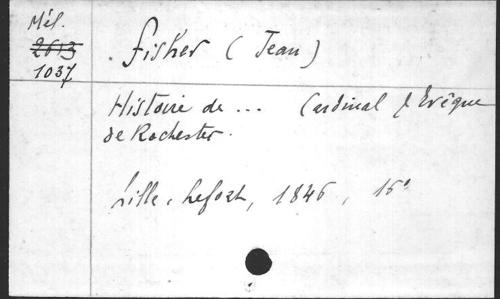 Mél.
2613
1037
. Fisher ( Jean )
Histoire de ... Cardinal & Evêque
de Rochester.
Lille, Lefort, 1846,